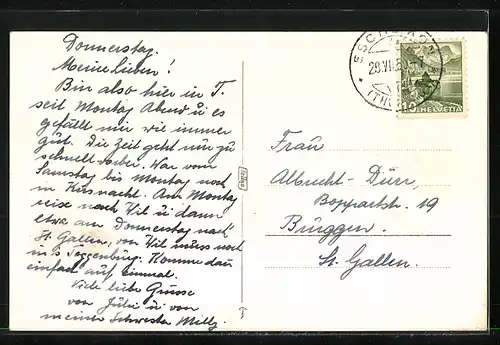 Donnerstag.
Meine Lieben!
Bin also hier in T.
seit Montag Abend u. es
gefällt mir wie immer
gut. Die Zeit geht nur zu
schnell vorbei. War von
Samstag bis Montag noch
in Küsnacht. Am Montag
reise nach Wil u. dann
etwa am Donnerstag nach
St. Gallen, von Wil muss noch
in's Toggenburg. Komme dann
einfach auf einmal.
Viele liebe Grüsse
von Julie u. von
meiner Schwester Milly.
28.VII.
10 HELVETIA
Frau
Albrecht-Dürr,
Boppartstr. 19
Bruggen
St. Gallen.